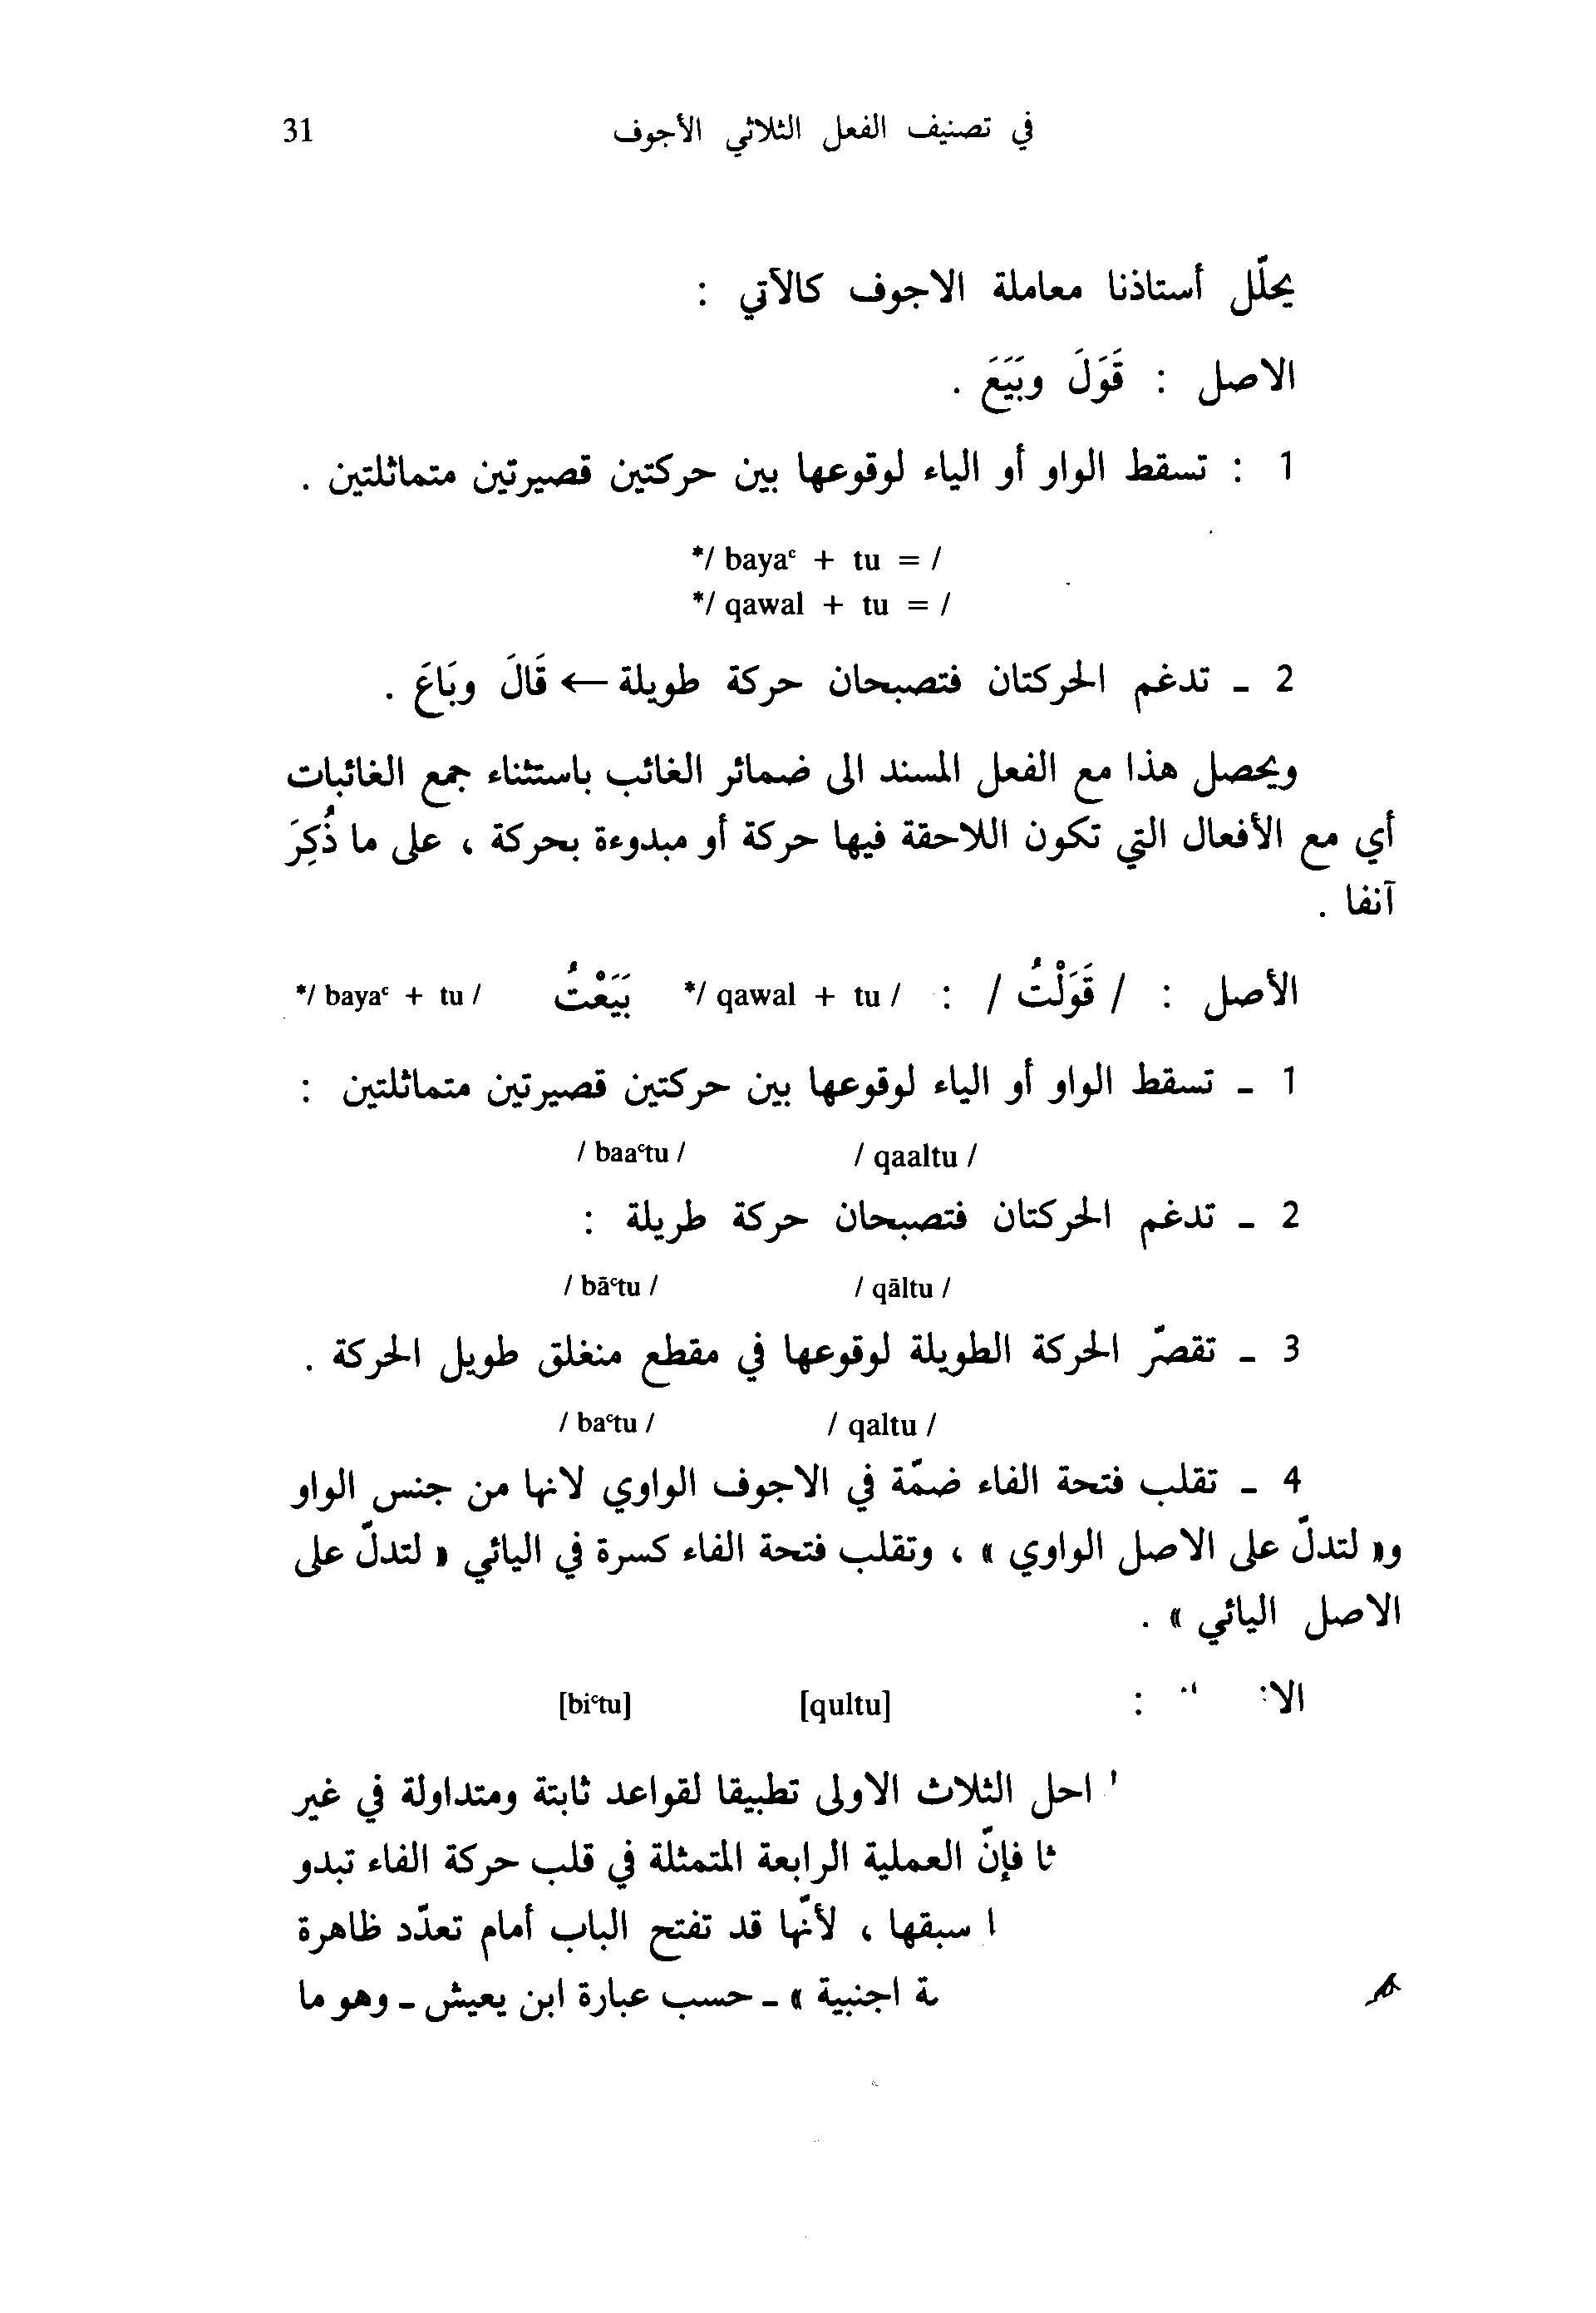 في تصنيف الفعل الثلاثي الأجوف 31
يحلّل أستاذنا معاملة الاجوف كالآتي :
الاصل : قَوَلَ وبَيَعَ .
1 : تسقط الواو أو الياء لوقوعها بين حركتين قصيرتين متماثلتين .
*/ bayaᶜ + tu = /
*/ qawal + tu = /
2 ـ تدغم الحركتان فتصبحان حركة طويلة ← قَالَ وبَاعَ .
ويحصل هذا مع الفعل المسند الى ضمائر الغائب باستثناء جمع الغائبات
أي مع الأفعال التي تكون اللاحقة فيها حركة أو مبدوءة بحركة ، على ما ذُكِرَ
آنفا .
الأصل : / قَوَلْتُ / : */ qawal + tu / بَيَعْتُ */ bayaᶜ + tu /
1 ـ تسقط الواو أو الياء لوقوعها بين حركتين قصيرتين متماثلتين :
/ qaaltu / / baaᶜtu /
2 ـ تدغم الحركتان فتصبحان حركة طريلة :
/ qāltu / / bāᶜtu /
3 ـ تقصّر الحركة الطويلة لوقوعها في مقطع منغلق طويل الحركة .
/ qaltu / / baᶜtu /
4 ـ تقلب فتحة الفاء ضمّة في الاجوف الواوي لانها من جنس الواو
و« لتدلّ على الاصل الواوي » ، وتقلب فتحة الفاء كسرة في اليائي « لتدلّ على
الاصل اليائي » .
: [qultu] [biᶜtu]
احل الثلاث الاولى تطبيقا لقواعد ثابتة ومتداولة في غير
فإنّ العملية الرابعة المتمثلة في قلب حركة الفاء تبدو
سبقها ، لأنّها قد تفتح الباب أمام تعدّد ظاهرة
اجنبية » ـ حسب عبارة ابن يعيش ـ وهو ما